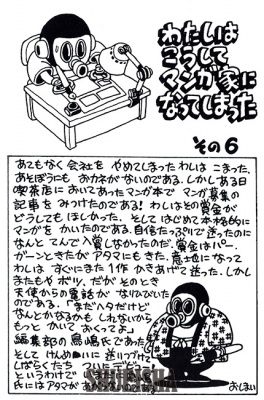 わたしは
こうして
マンガ家に
なってしまった
その6
あてもなく会社を やめてしまった わしは こまった。
あそぼうにも おカネがないのである。しかし ある日
喫茶店に おいてあった マンガ本で マンガ募集の
記事を みつけたのである! わしはその賞金が
どうしても ほしかった。そして はじめて 本格的に
マンガを かいたのである。自信たっぷりで 送ったのに
なんと てんで 入賞しなかったのだ。賞金はパー。
ガーンときたが アタマにも きた。意地になって
わしは すぐにまた 1作 かきあげて 送った。しかし
またもや ボツ。だが そのとき
天使からの 電話が なりひびいた
のである。「まだヘタだけど
なんとかなるかも しれないから
もっと かいて おくってよ」
編集部の 鳥嶋氏であった。
そして けんめいに 送りつづけて
しばらくたち ついにデビュー
というわけで いまだに 鳥嶋
氏には アタマが あがらないのである。
おしまい